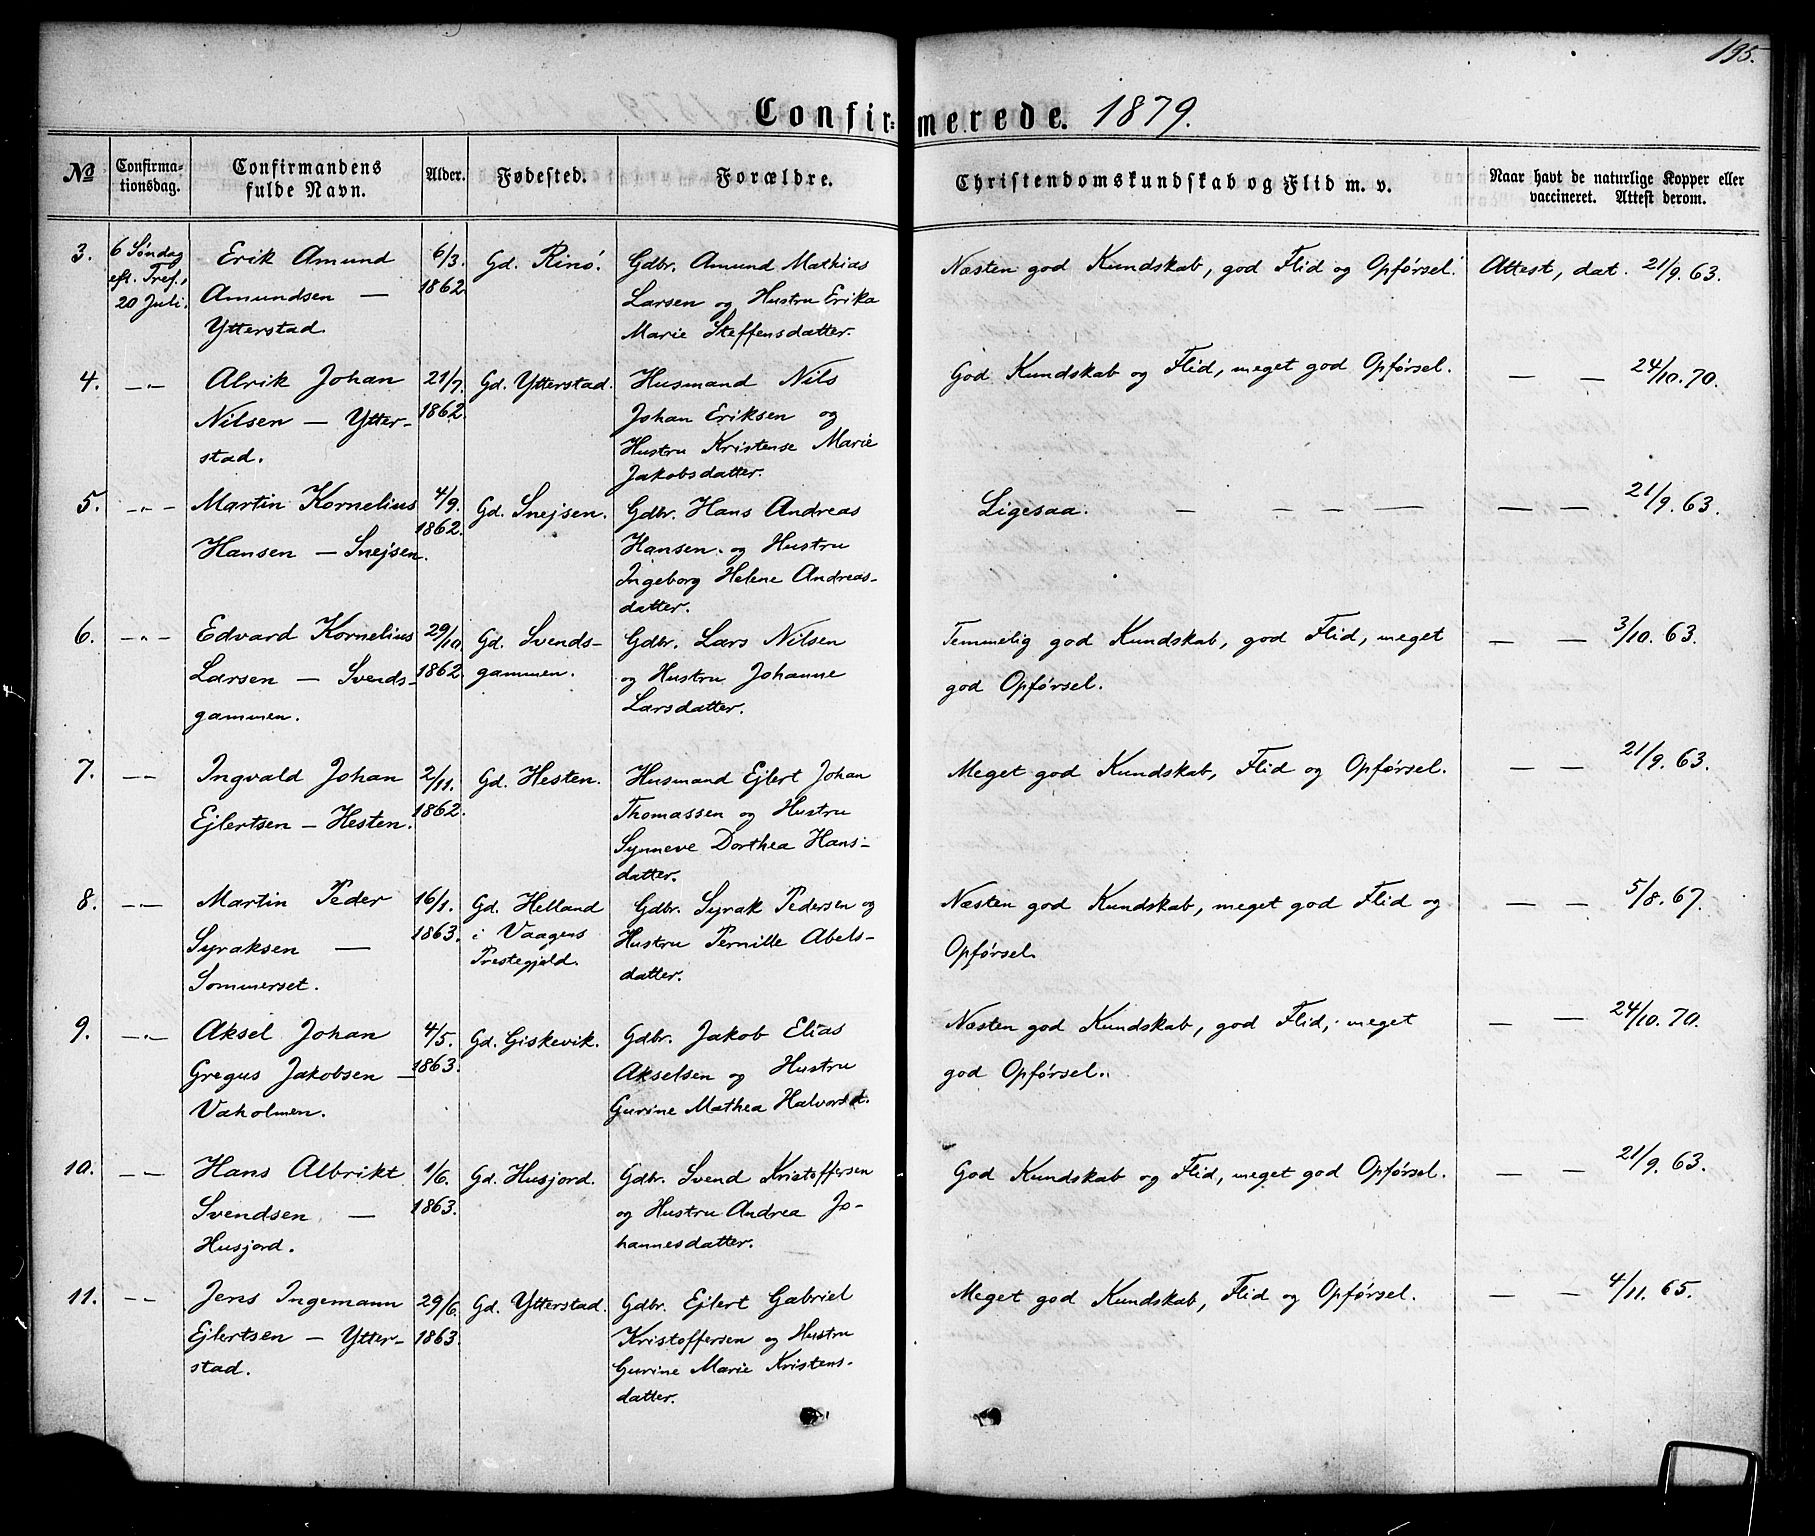 195.
Confirmerede. 1879.
No
Confirmationsdag.
Confirmandens fulde Navn.
Alder.
Fødested.
Forældre.
Christendomskundskab og Flid m. v.
Naar havt de naturlige Kopper eller vaccineret. Attest derom.
3. 6 Søndag Erik Amund 6/3. Gd. Rinö. Gdbr. Amund Mathias Næsten god Kundskab, god Flid og Opførsel. Attest, dat. 21/9. 63.
eft. Tref., Amundsen — 1862 Larsen og Hustru Erika
20 Juli. Ytterstad. Marie Steffensdatter.
4. —„— Alrik Johan 21/7. Gd. Ytterstad. Husmand Nils God Kundskab og Flid, meget god Opførsel. — — 24/10. 70.
Nilsen — Ytter- 1862. Johan Eriksen og
stad. Hustru Kristense Marie
Jakobsdatter.
5. —„— Martin Kornelius 4/9. Gd. Snejsen. Gdbr. Hans Andreas Ligesaa. — — — — — — 21/9. 63.
Hansen — Snejsen. 1862. Hansen og Hustru
Ingeborg Helene Andreas-
datter.
6. —„— Edvard Kornelius 29/10 Gd. Svends- Gdbr. Lars Nilsen Temmelig god Kundskab, god Flid, meget — — 3/10. 63.
Larsen — Svends- 1862 gammen. og Hustru Johanne god Opførsel.
gammen. Larsdatter.
7. —„— Ingvald Johan 2/11. Gd. Hesten. Husmand Ejlert Johan Meget god Kundskab, Flid og Opførsel. — — 21/9. 63.
Ejlertsen — Hesten. 1862. Thomassen og Hustru
Synneve Dorthea Hans-
datter.
8. —„— Martin Peder 16/1. Gd. Helland Gdbr. Syrak Pedersen og Næsten god Kundskab, meget god Flid og — — 5/8. 67.
Syraksen — 1863. i Vaagens Hustru Pernille Abels- Opførsel.
Sommerset. Prestegjald. datter.
9. —„— Aksel Johan 4/5. Gd. Giskevik. Gdbr. Jakob Elias Næsten god Kundskab, god Flid, meget — — 24/10. 70.
Gregus Jakobsen — 1863. Akselsen og Hustru god Opførsel.
Vaholmen. Gurine Mathea Halvorsd.
10. —„— Hans Albrikt 1/6. Gd. Husjord. Gdbr. Svend Kristoffersen God Kundskab og Flid, meget god Opførsel. — — 21/9. 63.
Svendsen — 1863. og Hustru Andrea Jo-
Husjord. hannesdatter.
11. —„— Jens Ingemann 29/6. Gd. Ytterstad. Gdbr. Ejlert Gabriel Meget god Kundskab, Flid og Opførsel. — — 4/11. 65.
Ejlertsen — Ytter- 1863. Kristoffersen og Hustru
stad. Gurine Marie Kristens-
datter.